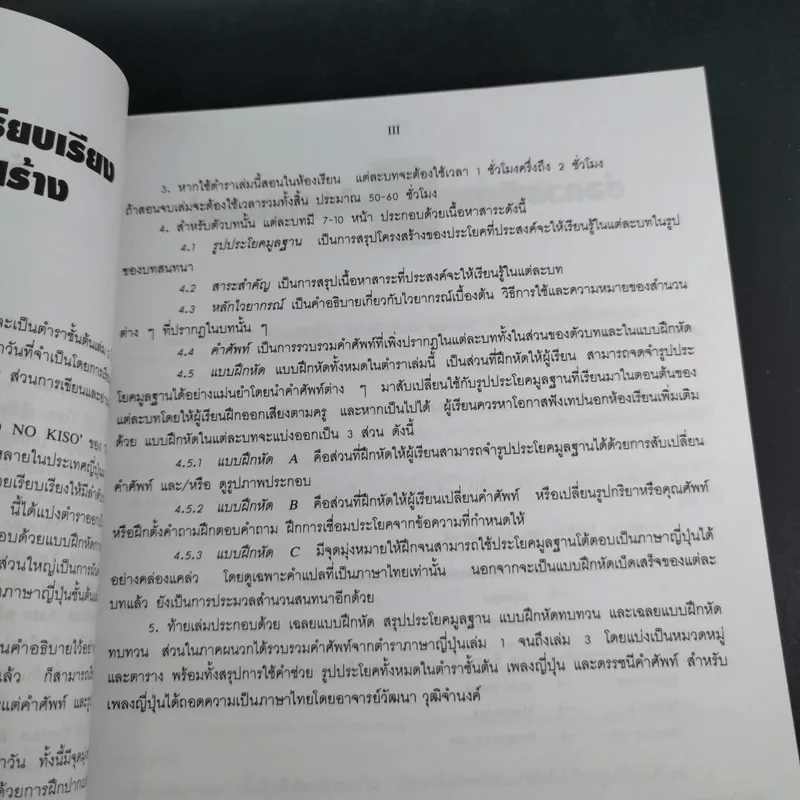 รียบเรียง
ร้าง
ละเป็นตำราชั้นต้นเล่ม
าวันที่จำเป็นโดยการเ
ส่วนการเขียนและอ่าน
O NO KISO' ของ
หลายในประเทศญี่ปุ่น
ายเรียบเรียงให้มีลำดับ
นี้ได้แบ่งตำราออก
อบด้วยแบบฝึกหัดการ
ส่วนใหญ่เป็นการผัน
าษาญี่ปุ่นชั้นต้นและ
นคำอธิบายไว้อย่าง
แล้ว ก็สามารถเ
แต่คำศัพท์ และ
าวัน ทั้งนี้มีจุด
ด้วยการฝึกปาก
III
3. หากใช้ตำราเล่มนี้สอนในห้องเรียน แต่ละบทจะต้องใช้เวลา 1 ชั่วโมงครึ่งถึง 2 ชั่วโมง
ถ้าสอนจบเล่มจะต้องใช้เวลารวมทั้งสิ้น ประมาณ 50-60 ชั่วโมง
4. สำหรับตัวบทนั้น แต่ละบทมี 7-10 หน้า ประกอบด้วยเนื้อหาสาระดังนี้
4.1 รูปประโยคมูลฐาน เป็นการสรุปโครงสร้างของประโยคที่ประสงค์จะให้เรียนรู้ในแต่ละบทในรูป
ของบทสนทนา
4.2 สาระสำคัญ เป็นการสรุปเนื้อหาสาระที่ประสงค์จะให้เรียนรู้ในแต่ละบท
4.3 หลักไวยากรณ์ เป็นคำอธิบายเกี่ยวกับไวยากรณ์เบื้องต้น วิธีการใช้และความหมายของสำนวน
ต่าง ๆ ที่ปรากฏในบทนั้น ๆ
4.4 คำศัพท์ เป็นการรวบรวมคำศัพท์ที่เพิ่งปรากฏในแต่ละบททั้งในส่วนของตัวบทและในแบบฝึกหัด
4.5 แบบฝึกหัด แบบฝึกหัดทั้งหมดในตำราเล่มนี้ เป็นส่วนที่ฝึกหัดให้ผู้เรียน สามารถจดจำรูปประ
โยคมูลฐานได้อย่างแม่นยำโดยนำคำศัพท์ต่าง ๆ มาสับเปลี่ยนใช้กับรูปประโยคมูลฐานที่เรียนมาในตอนต้นของ
แต่ละบทโดยให้ผู้เรียนฝึกออกเสียงตามครู และหากเป็นไปได้ ผู้เรียนควรหาโอกาสฟังเทปนอกห้องเรียนเพิ่มเติม
ด้วย แบบฝึกหัดในแต่ละบทจะแบ่งออกเป็น 3 ส่วน ดังนี้
4.5.1 แบบฝึกหัด A คือส่วนที่ฝึกหัดให้ผู้เรียนสามารถจำรูปประโยคมูลฐานได้ด้วยการสับเปลี่ยน
คำศัพท์ และ/หรือ ดูรูปภาพประกอบ
4.5.2 แบบฝึกหัด B คือส่วนที่ฝึกหัดให้ผู้เรียนเปลี่ยนคำศัพท์ หรือเปลี่ยนรูปกริยาหรือคุณศัพท์
หรือฝึกตั้งคำถามฝึกตอบคำถาม ฝึกการเชื่อมประโยคจากข้อความที่กำหนดให้
4.5.3 แบบฝึกหัด C มีจุดมุ่งหมายให้ฝึกจนสามารถใช้ประโยคมูลฐานโต้ตอบเป็นภาษาญี่ปุ่นได้
อย่างคล่องแคล่ว โดยดูเฉพาะคำแปลที่เป็นภาษาไทยเท่านั้น นอกจากจะเป็นแบบฝึกหัดเบ็ดเสร็จของแต่ละ
บทแล้ว ยังเป็นการประมวลสำนวนสนทนาอีกด้วย
5. ท้ายเล่มประกอบด้วย เฉลยแบบฝึกหัด สรุปประโยคมูลฐาน แบบฝึกหัดทบทวน และเฉลยแบบฝึกหัด
ทบทวน ส่วนในภาคผนวกได้รวบรวมคำศัพท์จากตำราภาษาญี่ปุ่นเล่ม 1 จนถึงเล่ม 3 โดยแบ่งเป็นหมวดหมู่
และตาราง พร้อมทั้งสรุปการใช้คำช่วย รูปประโยคทั้งหมดในตำราชั้นต้น เพลงญี่ปุ่น และดรรชนีคำศัพท์ สำหรับ
เพลงญี่ปุ่นได้ถอดความเป็นภาษาไทยโดยอาจารย์วัฒนา วุฒิจำนงค์